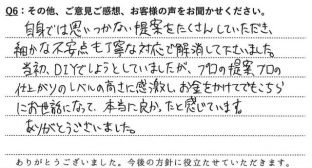 Q6：その他、ご意見ご感想、お客様の声をお聞かせください。
自身では思いつかない提案をたくさんしていただき、
細かな不安点も丁寧な対応で解消して下さいました。
当初、DIYでしようとしていましたが、プロの提案プロの
仕上がりのレベルの高さに感激し、お金をかけてでもこちら
にお世話になって、本当に良かったと感じています。
ありがとうございました。
ありがとうございました。今後の方針に役立たせていただきます。